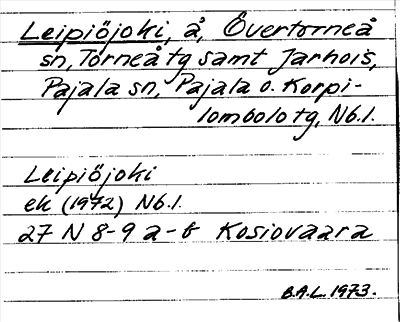 Leipiöjoki, å, Övertorneå
sn, Torneå tg samt Jarhois,
Pajala sn, Pajala o. Korpi-
lombolo tg, Nb.l.
Leipiöjoki
ek (1972) Nb.l.
27 N 8-9 a-b Kosiovaara
B.A.L. 1973.